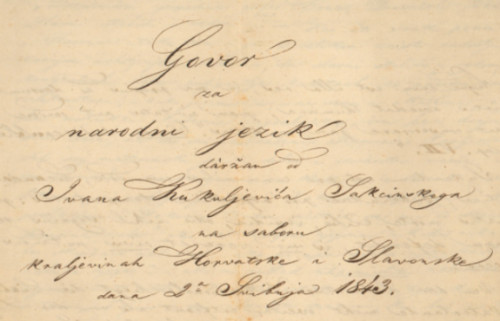 Govor
za
narodni jezik
dàržan od
Ivana Kukuljevića Sakcinskoga
na saboru
kraljevinah Horvatske i Slavonske
dana 2ᵍᵃ Svibnja 1843.